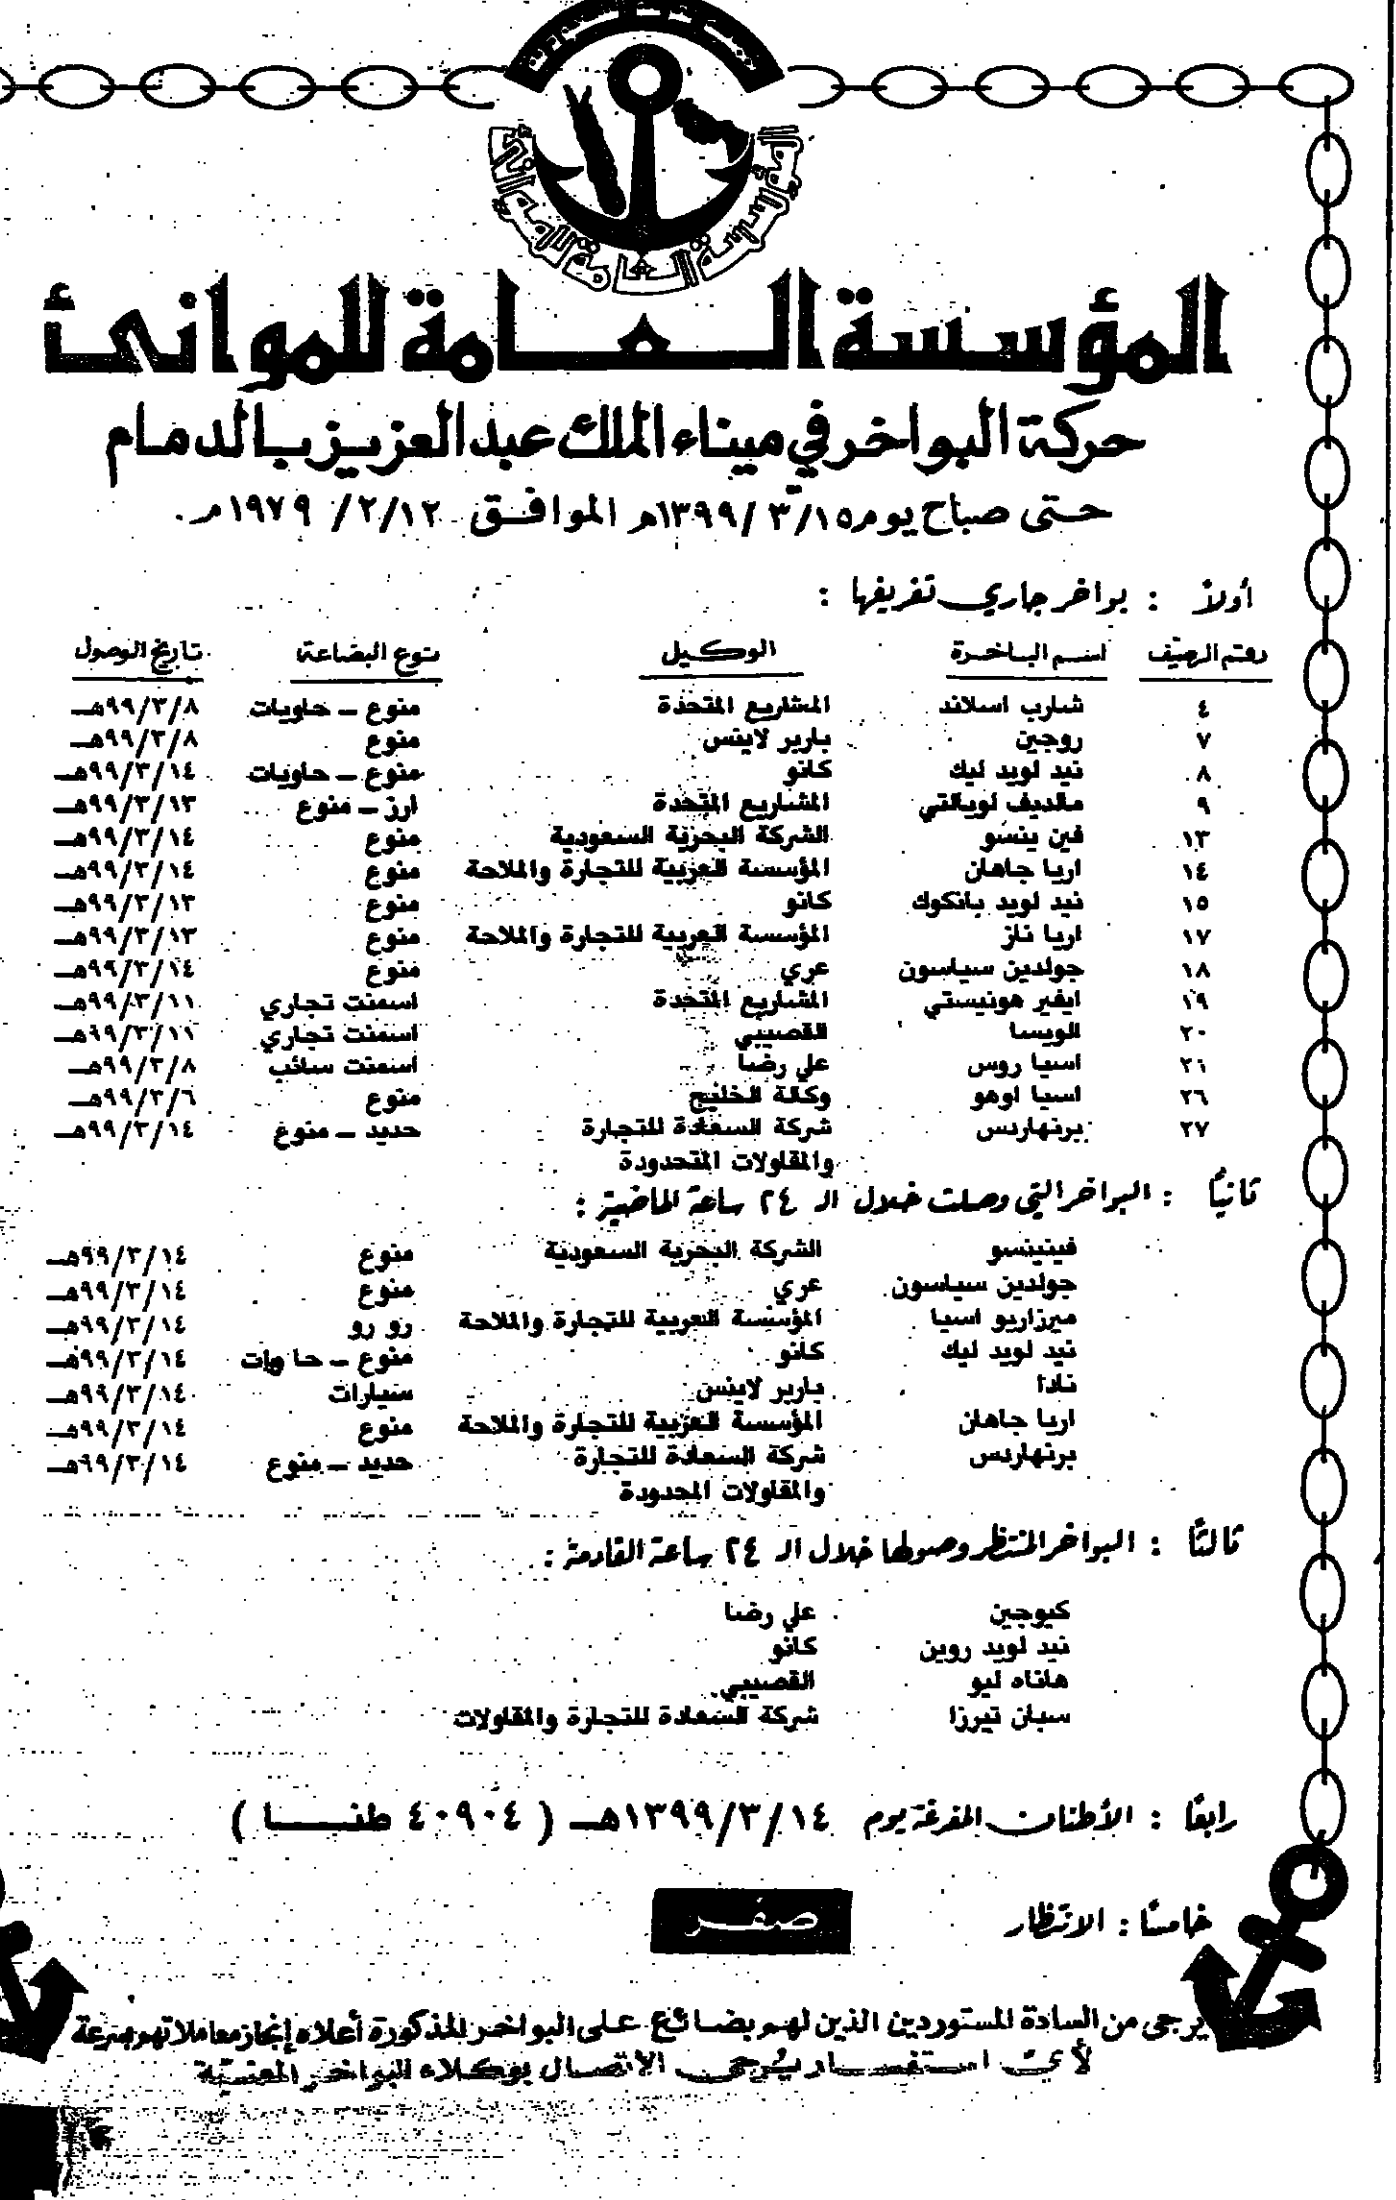 المؤسسة العامة للموانئ
المؤسسة العامة للموانئ
حركة البواخر في ميناء الملك عبد العزيز بالدمام
حتى صباح يوم ١٥/ ٣/ ١٣٩٩هـ الموافق ١٢/ ٢/ ١٩٧٩م.
أولاً : بواخر جاري تفريغها :
رقم الرصيف اسم الباخرة الوكيل نوع البضاعة تاريخ الوصول
٤ شارب اسلاند المشاريع المتحدة منوع – حاويات ٩٩/٣/٨هـ
٧ روجين باربر لاينس منوع ٩٩/٣/٨هـ
٨ نيد لويد ليك كانو منوع – حاويات ٩٩/٣/١٤هـ
٩ مالديف لويالتي المشاريع المتحدة ارز – منوع ٩٩/٣/١٣هـ
١٣ فين ينسو الشركة البحرية السعودية منوع ٩٩/٣/١٤هـ
١٤ اريا جاهان المؤسسة العربية للتجارة والملاحة منوع ٩٩/٣/١٤هـ
١٥ نيد لويد بانكوك كانو منوع ٩٩/٣/١٣هـ
١٧ اريا ناز المؤسسة العربية للتجارة والملاحة منوع ٩٩/٣/١٣هـ
١٨ جولدين سياسون عري منوع ٩٩/٣/١٤هـ
١٩ ايفير هونيستي المشاريع المتحدة اسمنت تجاري ٩٩/٣/١١هـ
٢٠ الويسا القصيبي اسمنت تجاري ٩٩/٣/١١هـ
٢١ اسيا روس علي رضا اسمنت سائب ٩٩/٣/٨هـ
٢٦ اسيا اوهو وكالة الخليج منوع ٩٩/٣/٦هـ
٢٧ برنهاردس شركة السعادة للتجارة حديد – منوع ٩٩/٣/١٤هـ
والمقاولات المتحدودة
ثانياً : البواخر التي وصلت خلال الـ ٢٤ ساعة الماضية :
فينينسو الشركة البحرية السعودية منوع ٩٩/٣/١٤هـ
جولدين سياسون عري منوع ٩٩/٣/١٤هـ
ميرزاريو اسيا المؤسسة العربية للتجارة والملاحة رو رو ٩٩/٣/١٤هـ
نيد لويد ليك كانو منوع – حاويات ٩٩/٣/١٤هـ
نادا باربر لاينس سيارات ٩٩/٣/١٤هـ
اريا جاهان المؤسسة العربية للتجارة والملاحة منوع ٩٩/٣/١٤هـ
برنهاردس شركة السعادة للتجارة حديد – منوع ٩٩/٣/١٤هـ
والمقاولات المحدودة
ثالثاً : البواخر المنتظر وصولها خلال الـ ٢٤ ساعة القادمة :
كيوجين علي رضا
نيد لويد روين كانو
هاناه ليو القصيبي
سبان تيرزا شركة السعادة للتجارة والمقاولات
رابعاً : الأطنان المفرغة يوم ١٣٩٩/٣/١٤هـ ( ٤٠٩٠٤ طنــا )
خامساً : الانتظار صفر
يرجى من السادة المستوردين الذين لهم بضائع على البواخر المذكورة أعلاه إنجاز معاملاتهم بسرعة
لأي استفسار يُرجى الاتصال بوكلاء البواخر المعنية